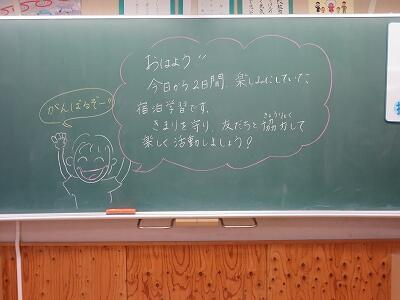 おはよう!!
今日から2日間、楽しみにしていた、
宿泊学習です。
きまりを守り、友だちと協力して
きょうりょく
楽しく活動しましょう!
がんばるぞー!!